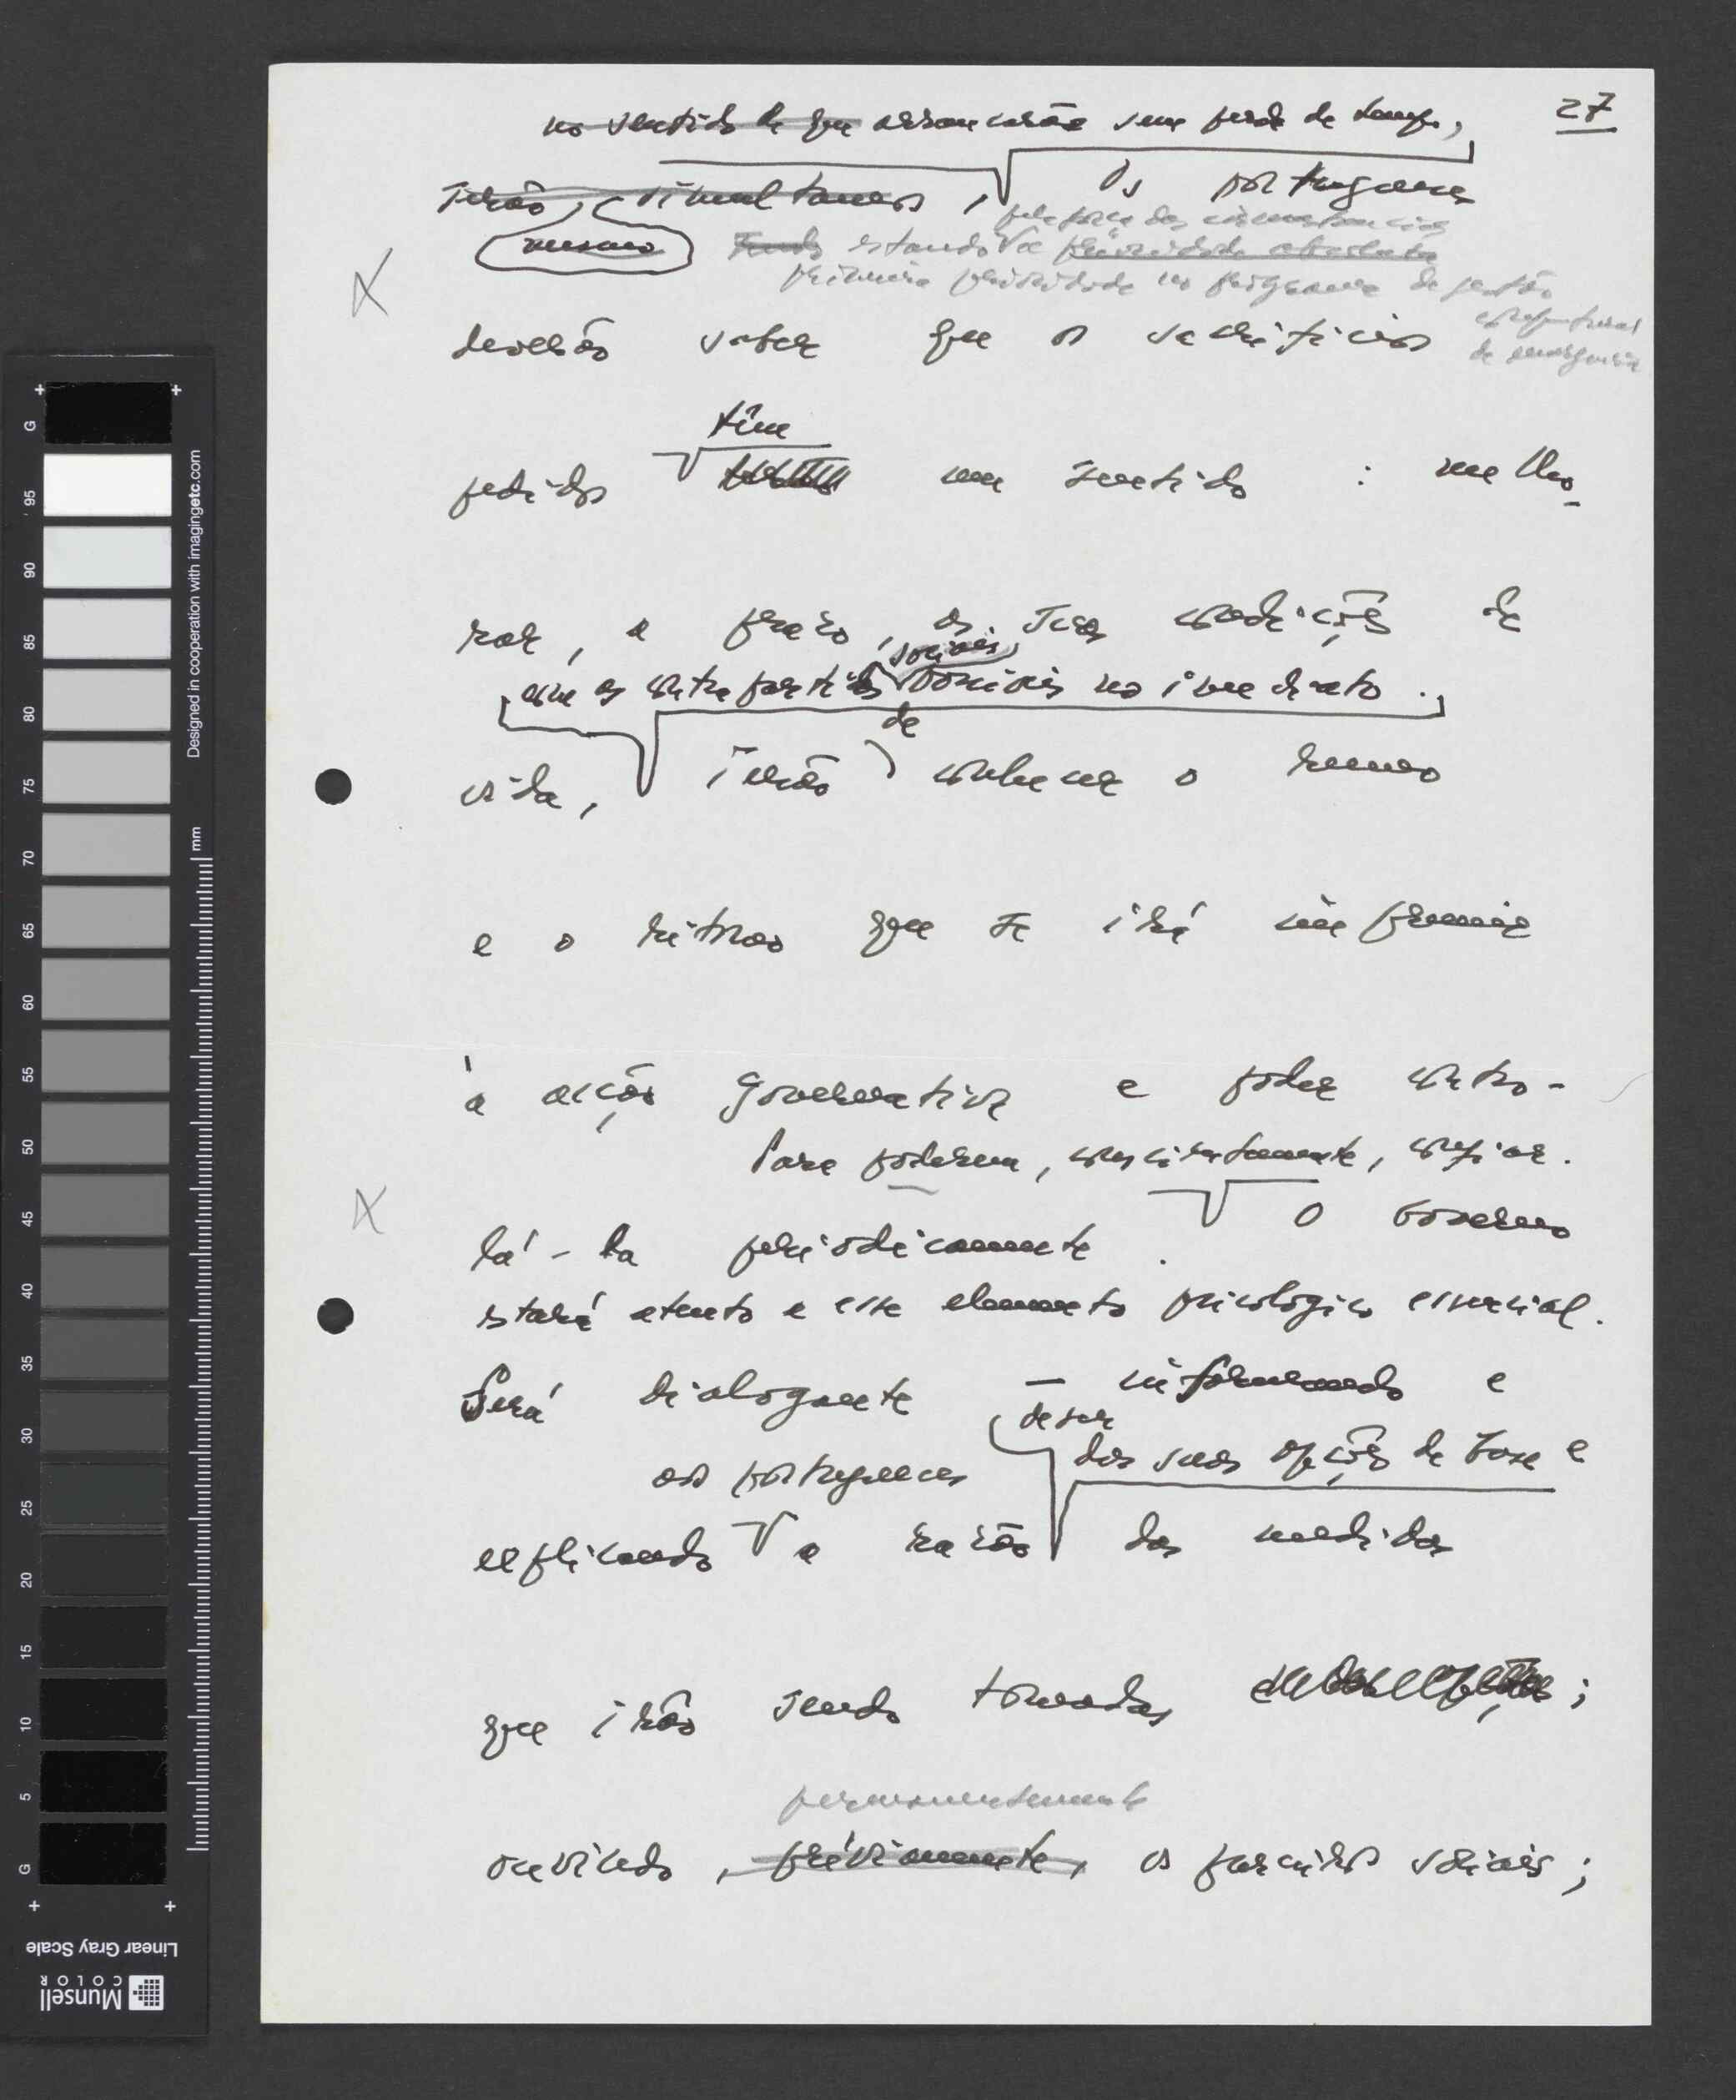 27
no sentido de que arrancarão sem perda de tempo,
serão, simultaneos, Os portugueses
pela força das circunstancias
mesmo Tendo estando a prioridade absoluta
primeira prioridade no programa de gestão
conjuntural
de emergência
deverão saber que os sacrifícios
têm
pedidos um sentido : melho-
rar, a prazo, as suas condições de
sociais
com as contrapartidas possiveis no imediato.
de
vida, terão conhecer o rumo
e o ritmo que se irá imprimir
à acção governativa e poder contro-
Para poderem, conscientemente, confiar.
lá-la periodicamente. O Governo
estará atento a esse elemento psicologico essencial.
Será dialogante — informando e
de ser
aos portugueses das suas opções de base e
explicando a razão das medidas
que irão sendo tomadas ;
permanentemente
ouvindo, préviamente, os parceiros sociais;
G 95 90 85 80 75 70 65 60 55 50 45 40 35 30 25 20 15 10 5 G
mm
Designed in cooperation with imagingetc.com
Linear Gray Scale
Munsell
COLOR